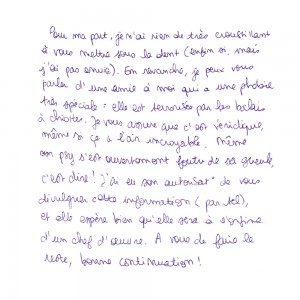 Pour ma part, je n'ai rien de très croustillant
à vous mettre sous la dent (enfin si, mais
j'ai pas envie). En revanche, je peux vous
parler d'une amie à moi qui a une phobie
très spéciale : elle est terrorisée par les balais
à chiottes. Je vous assure que c'est véridique,
même si ça a l'air incroyable. Même
son psy s'est ouvertement foutu de sa gueule,
c'est dire ! J'ai eu son autorisat° de vous
divulguer cette information (par tel),
et elle espère bien qu'elle sera à l'origine
d'un chef d'œuvre. A vous de faire le
reste, bonne continuation !